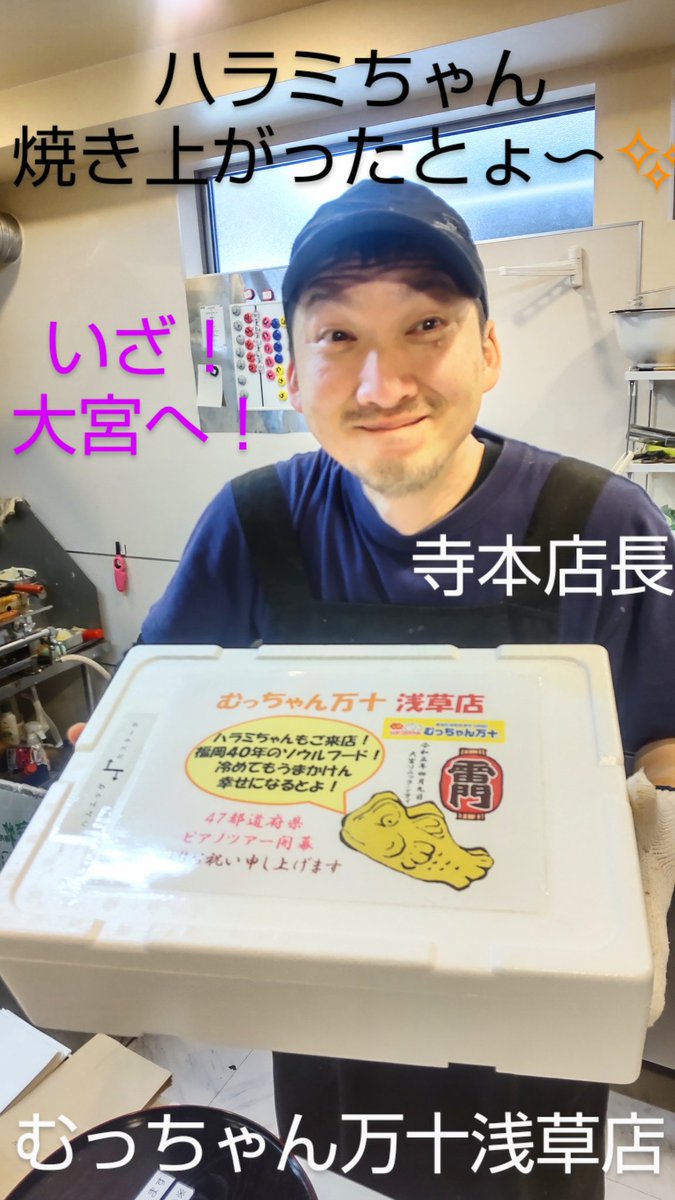 ハラミちゃん
焼き上がったとょ〜✨
いざ！
大宮へ！
寺本店長
むっちゃん万十 浅草店
むっちゃん万十
ハラミちゃんもご来店！
福岡40年のソウルフード！
冷めてもうまかけん
幸せになるとよ！
令和五年四月九日
大宮ソニックシティ
雷門
47都道府県
ピアノツアー閉幕
お祝い申し上げます
むっちゃん万十浅草店